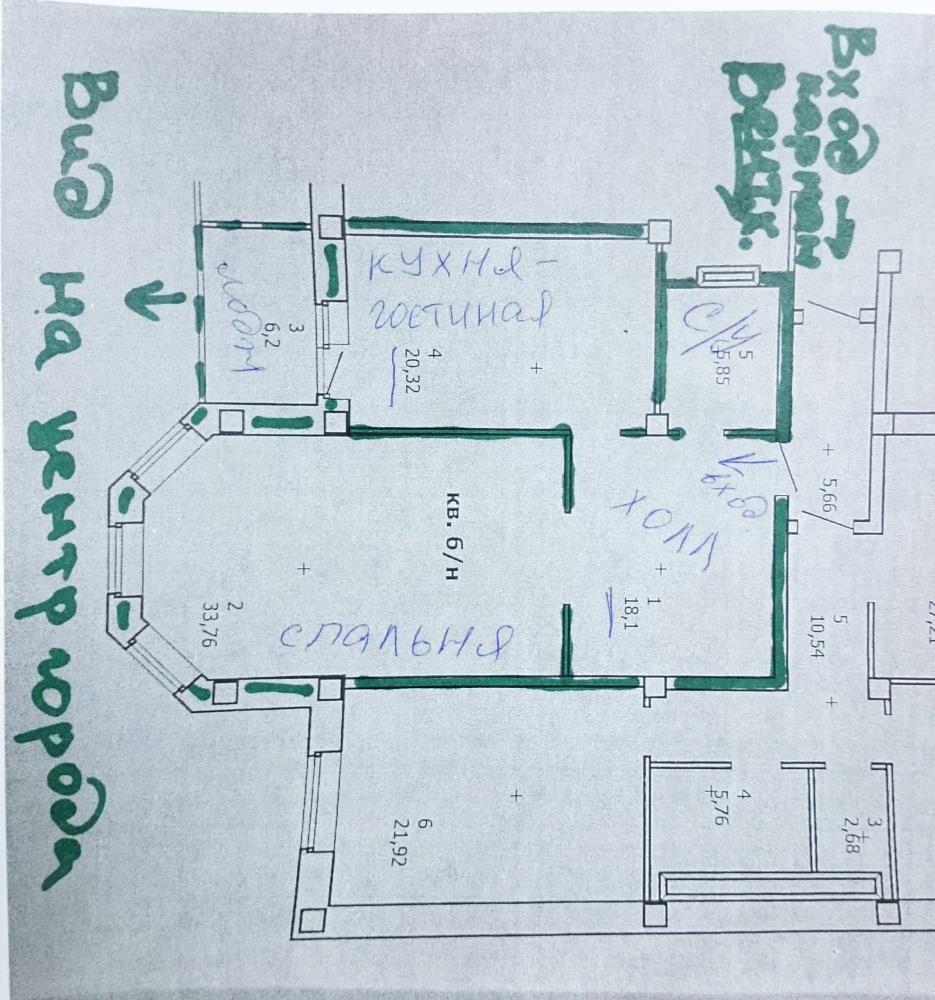 Вход →
картам
Вентк.
Вид на центр города
кухня-
гостиная
4
20,32
3
6,2
С/у
5
5,85
вход
холл
1
18,1
кв. б/н
2
33,76
спальня
5,66
5
10,54
27,21
4
5,76
3
2,68
6
21,92